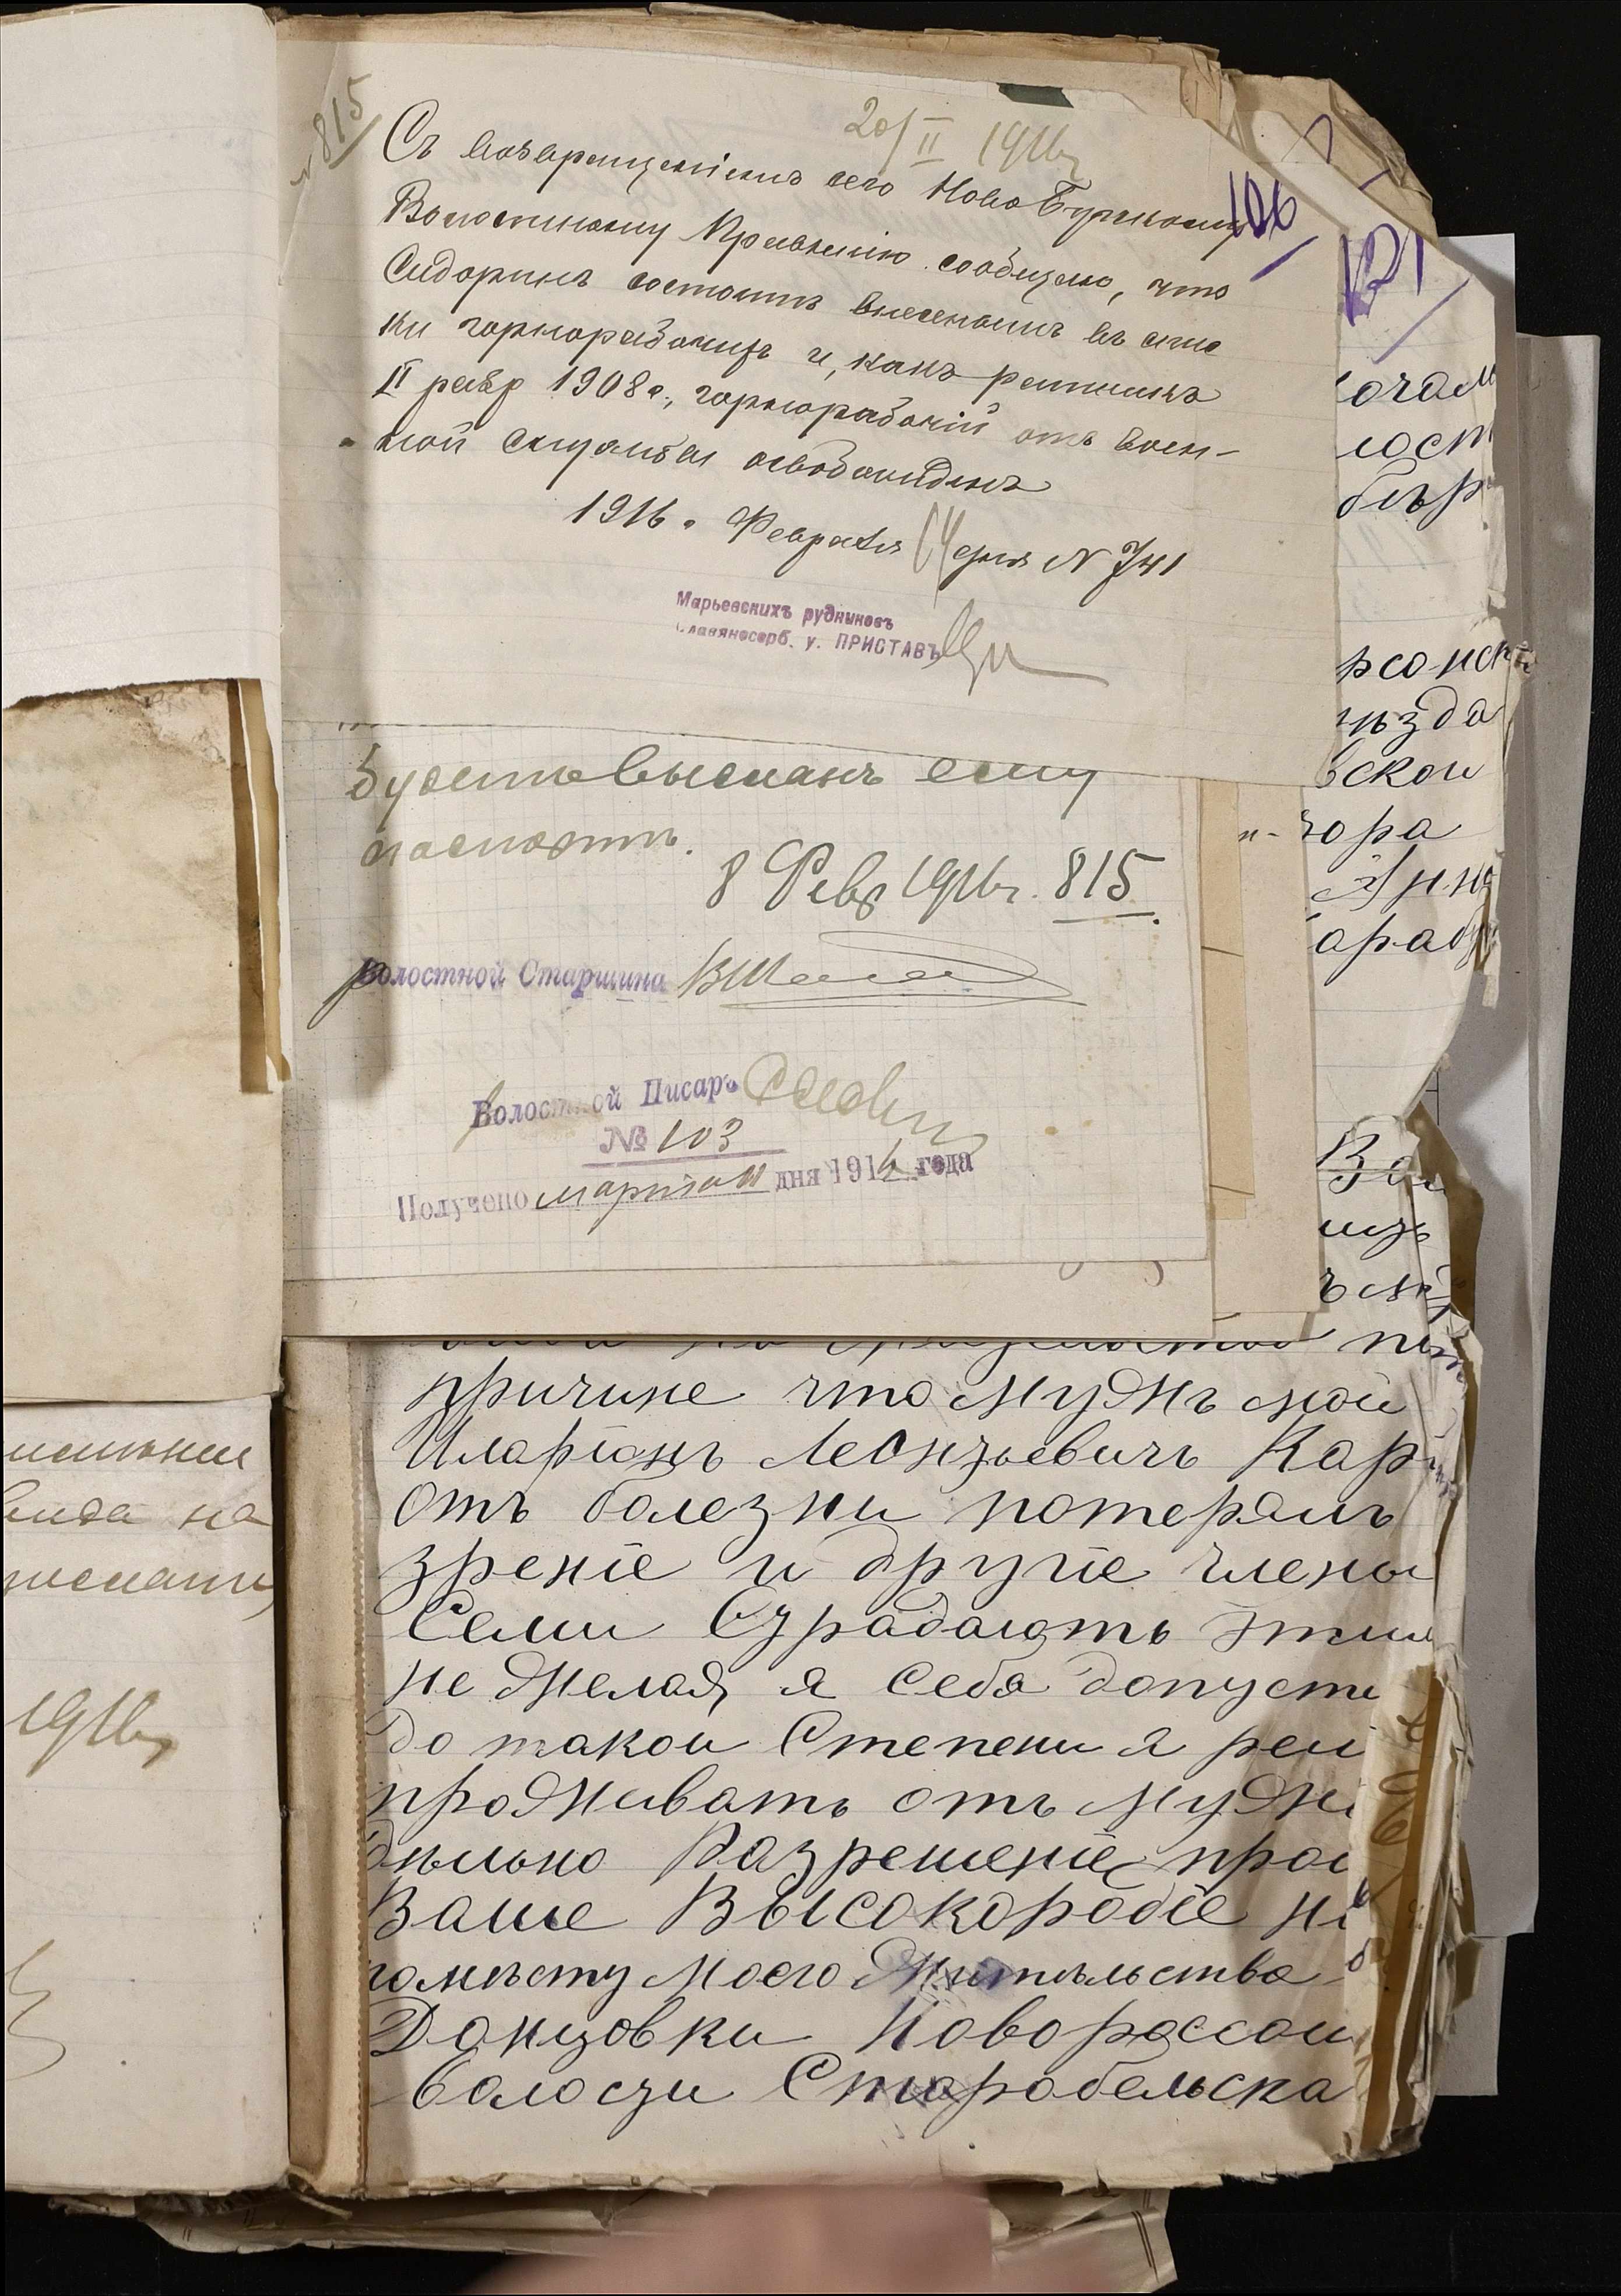 № 815
20/II 1916 г
Съ возвращеніемъ сего Ново Бугскому
106
Волостному Правленію сообщаю, что
Сидоринъ состоитъ внесенымъ въ спис
ки горнорабочихъ и, какъ ратникъ
II разр 1908 г., горнорабочій отъ воен-
ной службы освобожденъ
1916 г. Февраля 14 дня N 741
Марьевскихъ рудниковъ
Славяносерб. у. ПРИСТАВЪ
будетъ высланъ ему
паспортъ.
8 Февр 1916 г. 815
Волостной Старшина
Волостной Писарь
№ 103
Получено марта 11 дня 1916 года
причине что мужъ мой
Иларіонъ Леонтьевичъ Кар
отъ болезни потерялъ
зреніе и другіе члены
Семи Страдаютъ этим
не желая я себя допусти
до такои Степени я реш
проживать отъ мужа
дѣльно Разрешеніе про
Ваше Высокородіе н
помѣсту моего Жительства
Донцовки Новоросои
Волости Старобельска
121
очам
лост
бѣр
рсонск
ѣзда
вскои
гора
Анн
араб
Вол
изъ
вида на
1916 г